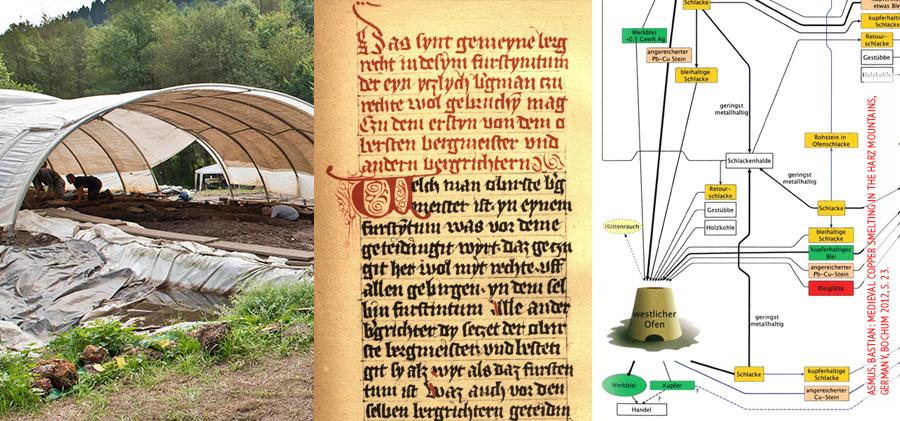 Das synt gemeyne berg
recht in desym furstyntum
der eyn yczlych b'gman czu
rechte wol gebruchyn mag
Czu dem erstyn von dem o
bersten bergmeister vnd
andern bergrichtern
Welch man obirste b'g
meister ist yn eynem
furstytum was vor deme
geteidingit wyrt daz geczu
git her wol myt rechte uff
allen gebirgen yn dem sel
bin furstintum Alle ander
b'grichter dy seczet der obir
ste bergmeister vnd besteti
git sy alz wyt alz daz fursten
tum ist Waz auch vor den
selben bergrichtern geteidin
Schlacke
Werkblei
~0.5 Gew% Ag
angereicherter
Pb-Cu Stein
bleihaltige
Schlacke
etwas Ble
kupferhalti
Schlacke
Retour-
schlacke
Gestübbe
Holzkohle
geringst
metallhaltig
Schlackenhalde
Rohstein in
Ofenschlacke
geringst
metallhaltig
Retour-
schlacke
Gestübbe
Holzkohle
Hüttenrauch
Schlacke
bleihaltige
Schlacke
kupferhaltiges
Blei
angereicherter
Pb-Cu-Stein
Bleiglätte
westlicher
Ofen
geringst
metallhaltig
Schlacke
kupferhaltige
Schlacke
angereicherter
Cu-Stein
Werkblei
Kupfer
?
?
Handel
ASMUS, BASTIAN: MEDIEVAL COPPER SMELTING IN THE HARZ MOUNTAINS,
GERMANY, BOCHUM 2012, S. 23.